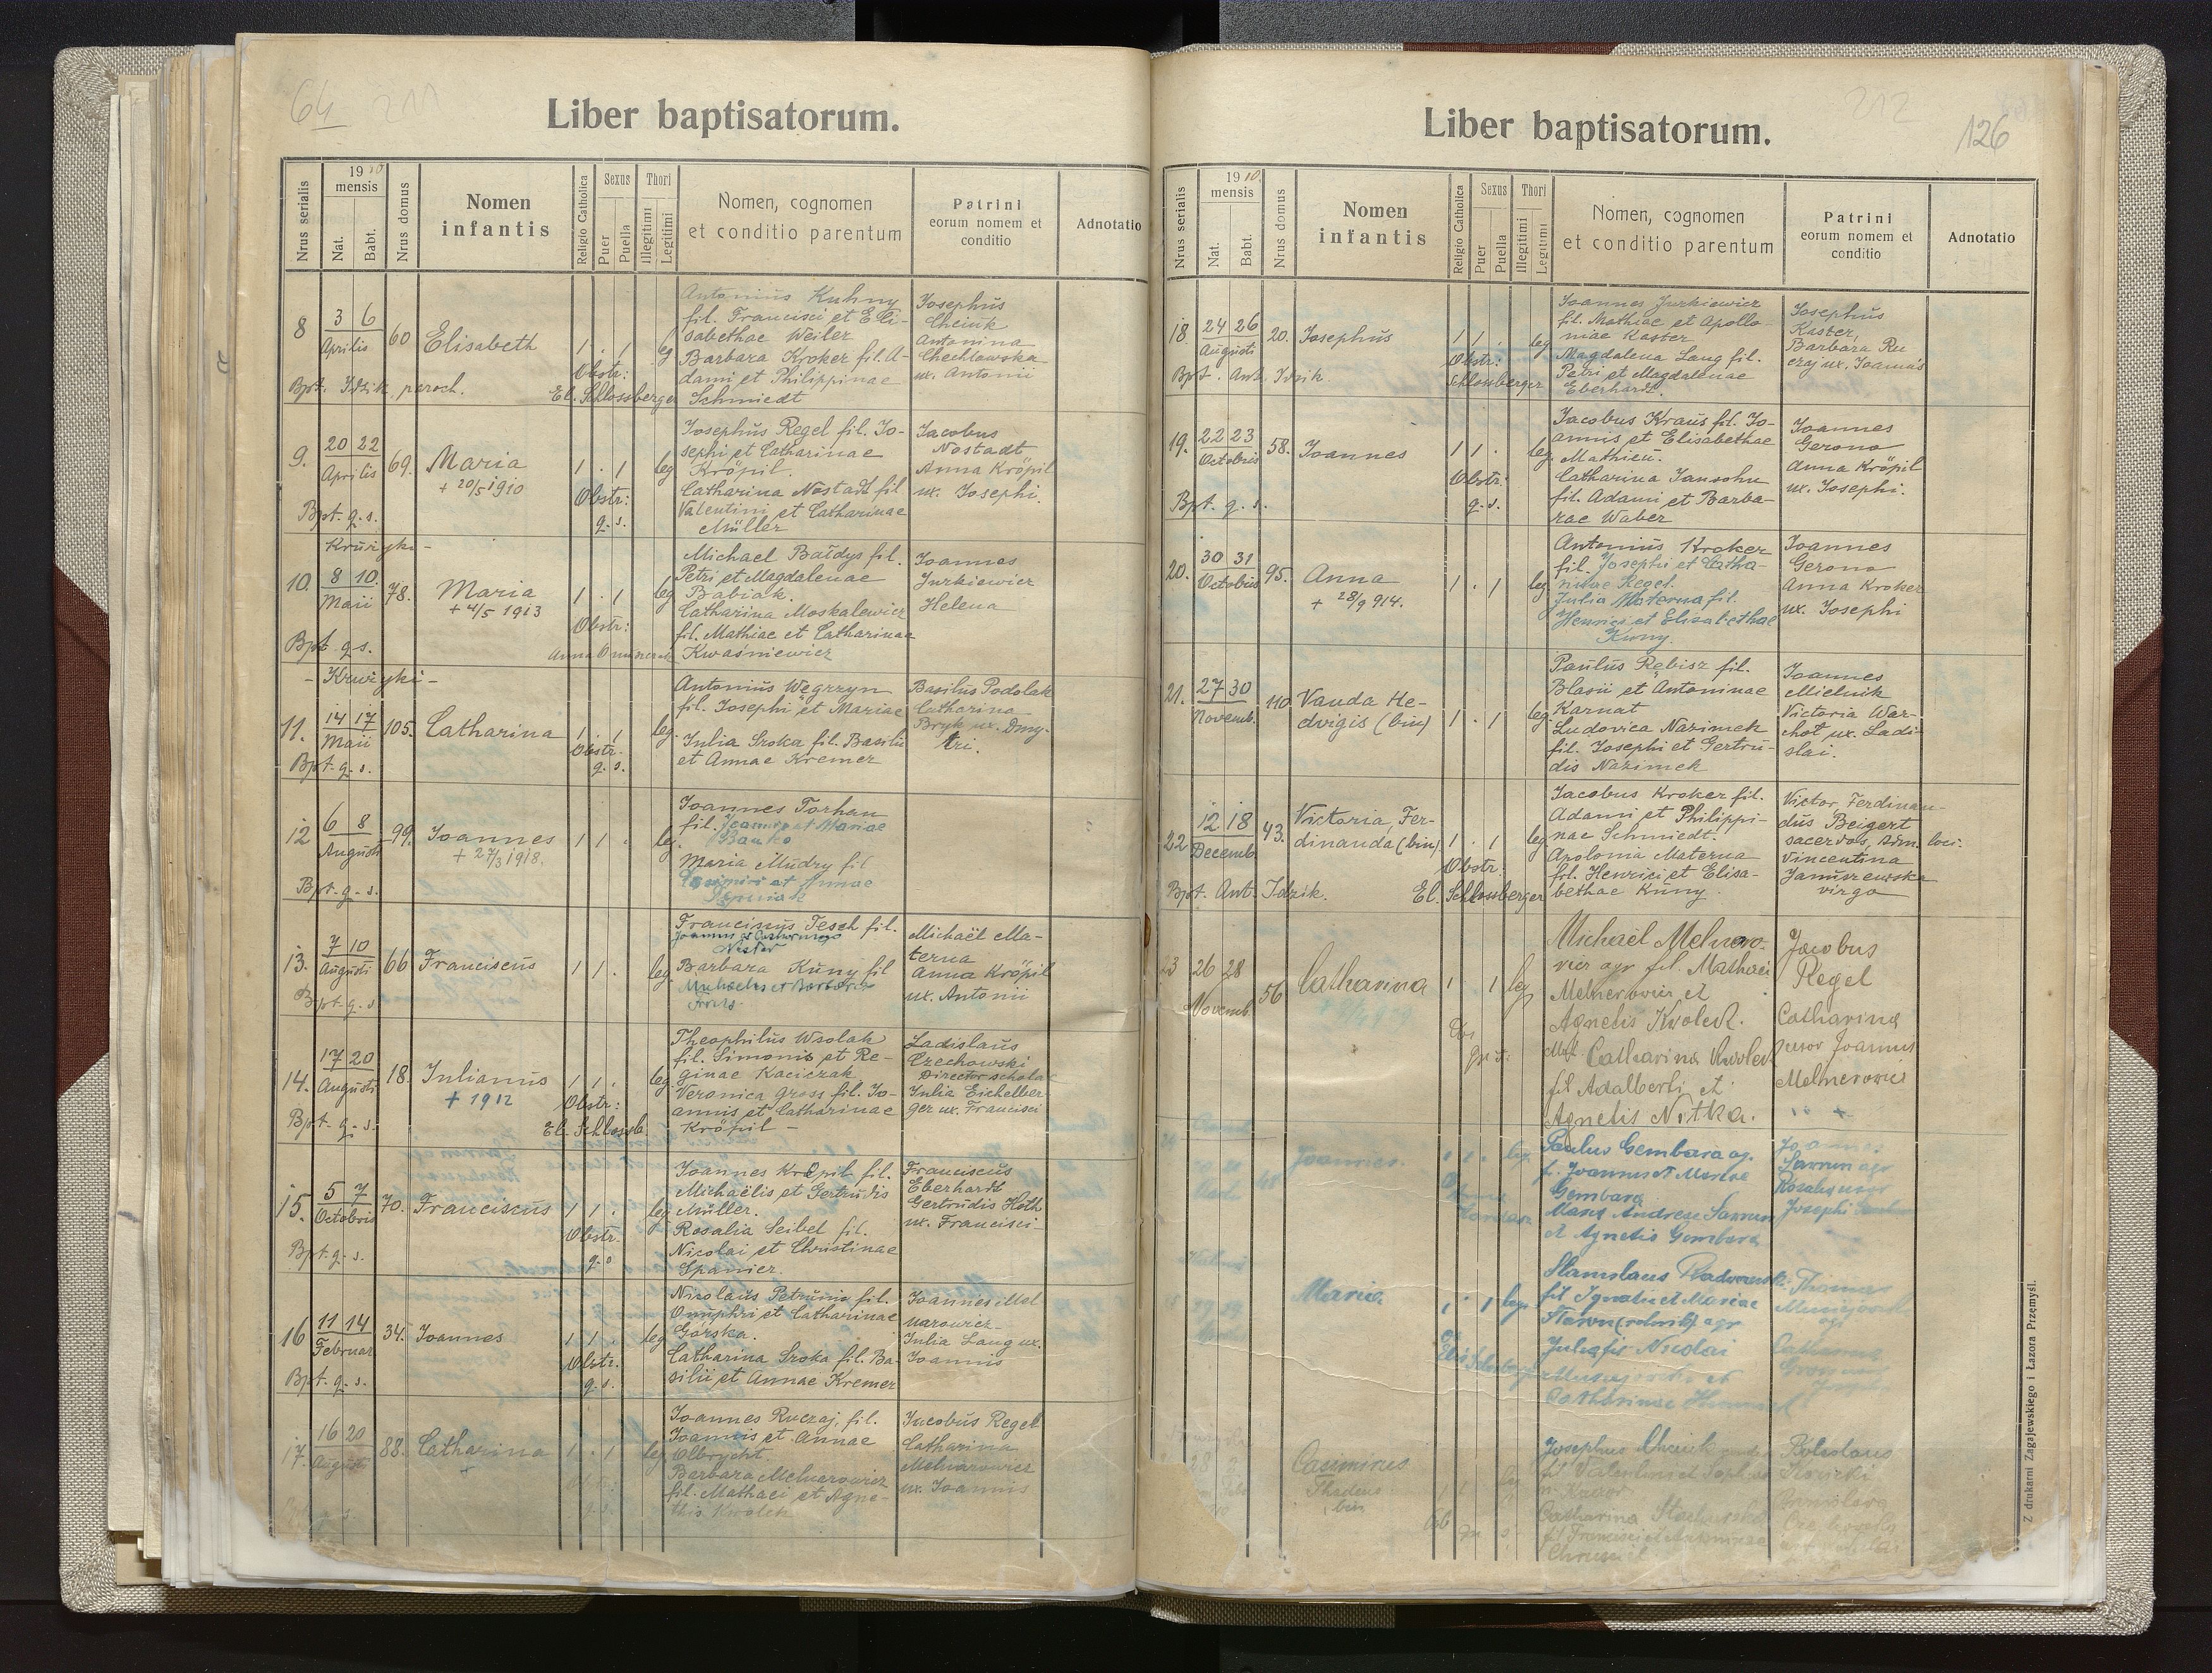 64 211
Liber baptisatorum.
Nrus serialis
1910
mensis
Nat.
Babt.
Nrus domus
Nomen
infantis
Religio Catholica
Sexus
Puer
Puella
Thori
Illegitimi
Legitimi
Nomen, cognomen
et conditio parentum
Patrini
eorum nomem et
conditio
Adnotatio
8
3 6
Aprilis
60
Elisabeth
1 . 1 leg
Obstr:
El. Schlossberger
Bpt. Idzik, paroch.
Antonius Kuhny
fil. Francisci et Eli-
sabethae Weiler
Barbara Kroker fil. A-
dami et Philippinae
Schmiedt
Iosephus
Cheink
Antonina
Chechłowska
ux. Antonii
9.
20 22
Aprilis
69.
Maria
+ 20/5 1910
1 . 1 leg
Obstr:
q. s.
Bpt. q. s.
Iosephus Regel fil. Io-
sephi et Catharinae
Kröpil.
Catharina Nostadt fil
Valentini et Catharinae
Müller
Iacobus
Nostadt
Anna Kröpil
ux. Iosephi.
Kruzyki-
10.
8 10.
Maii
78.
Maria
+ 4/5 1913
1 . 1 leg
Obstr:
Bpt. q. s.
Michael Bałdys fil.
Petri et Magdalenae
Babiak.
Catharina Moskalewicz
fil. Mathiae et Catharinae
Kwaśniewicz
Ioannes
Jurkiewicz
Helena
- Kruzyki -
11.
14 17
Maii
105.
Catharina
1 . 1 leg.
Obstr.
q. s.
Bpt. q. s.
Antonius Węgrzyn
fil. Iosephi et Mariae
Iulia Sroka fil. Basilii
et Annae Kremer
Basilius Podolak
Catharina
Bryk ux. Dmy-
tri.
12
6 8
Augusti
99.
Ioannes
+ 27/3 1918.
1 1 . leg.
Bpt. q. s.
Ioannes Torhan
fil. Joannis et Mariae
Banko
Maria Mudry fil
Casimiri et Annae
13.
7 10
Augusti
66
Franciscus
1 1 . leg.
Bpt. q. s
Franciscus Tesch fil.
Joannis et Catharinae
Barbara Kuny fil
Michaelis et Barbarae
Michaël Ma-
terna
Anna Kröpil
ux. Antonii
14.
17 20
Augusti
18.
Iulianus
+ 1912
1 1 . leg
Obstr:
El. Schlossb.
Bpt. q. s.
Theophilus Wsolak
fil. Simonis et Re-
ginae Kaciczak
Veronica Gross fil. Io-
annis et Catharinae
Kröpil -
Ladislaus
Czechowski
Director scholae
Iulia Eichelber-
ger ux. Francisci
15.
5 7
Octobris
70.
Franciscus
1 1 . leg
Obstr.
q. s
Bpt. q. s.
Ioannes Kröpil fil.
Michaëlis et Gertrudis
Müller.
Rosalia Seibel fil.
Nicolai et Christinae
Spanier.
Franciscus
Eberhardt
Gertrudis Hoth
ux. Francisci
16
11 14
Februar
34.
Ioannes
1 1 . leg
Obstr.
q. s.
Bpt. q. s.
Nicolaus Petrunio fil.
Onuphri et Catharinae
Górska.
Catharina Sroka fil. Ba-
silii et Annae Kremer
Ioannes Mel
narowicz
Iulia Lang ux.
Ioannis
17.
16 20
Augusti
88.
Catharina
1 . 1 leg
Ioannes Ruczaj, fil.
Ioannis et Annae
Olbrycht.
Barbara Melnarowicz
fil. Mathaei et Agne-
this Kwolek
Iacobus Regel
Catharina
Melnarowicz
ux. Ioannis
212
126
Liber baptisatorum.
Nrus serialis
1910.
mensis
Nat.
Babt.
Nrus domus
Nomen
infantis
Religio Catholica
Sexus
Puer
Puella
Thori
Illegitimi
Legitimi
Nomen, cognomen
et conditio parentum
Patrini
eorum nomem et
conditio
Adnotatio
18.
24 26
Augusti
20.
Iosephus
1 1 . leg
Obstr:
Schlossberger
Bpt. Ant. Idzik.
Ioannes Jurkiewicz
fil. Mathiae et Apollo-
niae Kaster
Magdalena Lang fil.
Petri et Magdalenae
Eberhardt.
Iosephus
Kaster,
Barbara Ru
czaj ux. Ioannis
19.
22 23
Octobris
58.
Ioannes
1 1 . leg.
Obstr:
q. s.
Bpt. q. s.
Iacobus Kraus fil. Io-
annis et Elisabethae
Mathieu.
Catharina Iansohn
fil. Adami et Barba-
rae Waber
Ioannes
Gerono
Anna Kröpil
ux. Iosephi.
20.
30 31
Octobris
95.
Anna
+ 28/9 914.
1 . 1 leg
Antonius Kroker
fil. Josephi et Catha-
rinae Regel.
Julia Materna fil.
Henrici et Elisabethae
Kuny.
Ioannes
Gerono
Anna Kroker
ux. Iosephi
21.
27 30
Novemb.
110
Vanda He-
dvigis (bin)
1 . 1 leg.
Paulus Rębisz fil.
Blasii et Antoninae
Karnat
Ludovica Nazimek
fil. Iosephi et Gertru-
dis Nazimek
Ioannes
Mielnik
Victoria War-
chot ux. Ladi-
slai.
22
12 18
Decemb.
43.
Victoria Fer-
dinanda (bin)
1 . 1 leg.
Obstr.
El. Schlossberger
Bpt. Ant. Idzik.
Iacobus Kroker fil.
Adami et Philippi-
nae Schmiedt.
Apolonia Materna
fil. Henrici et Elisa-
bethae Kuny.
Victor Ferdinan-
dus Beigert
sacerdos, Adm. loci.
Vincentina
Januszewska
virgo
23
26 28
Novemb.
56
Catharina
1 1 leg
Michaël Melnaro-
vicz agr fil. Mathaei
Melnerowicz et
Agnetis Kwolek.
Catharina Kwolek
fil Adalberti et
Agnetis Nitka.
Jacobus
Regel
Catharina
uxor Joannis
Melnerowicz
Joannes.
1 1 . leg
Paulus Gembara ag.
f. Joannis et Mariae
Gembara
Maria Andreae Sarzun
et Agnetis Gembara
Joannes
Sarzun agr
Rosalia uxor
Josephi
Maria
1 . 1 leg
Stanislaus
fil Ignatii et Mariae
Julia fil Nicolai
et
Catharinae
Thomas
Catharina
Casimirus
Thadeus
bin
Josephus Cheink
fil Valentini et Sophiae
Catharina
fil Francisci et Antoninae
Boleslaus
Z drukarni Zagajewskiego i Łazora Przemyśl.